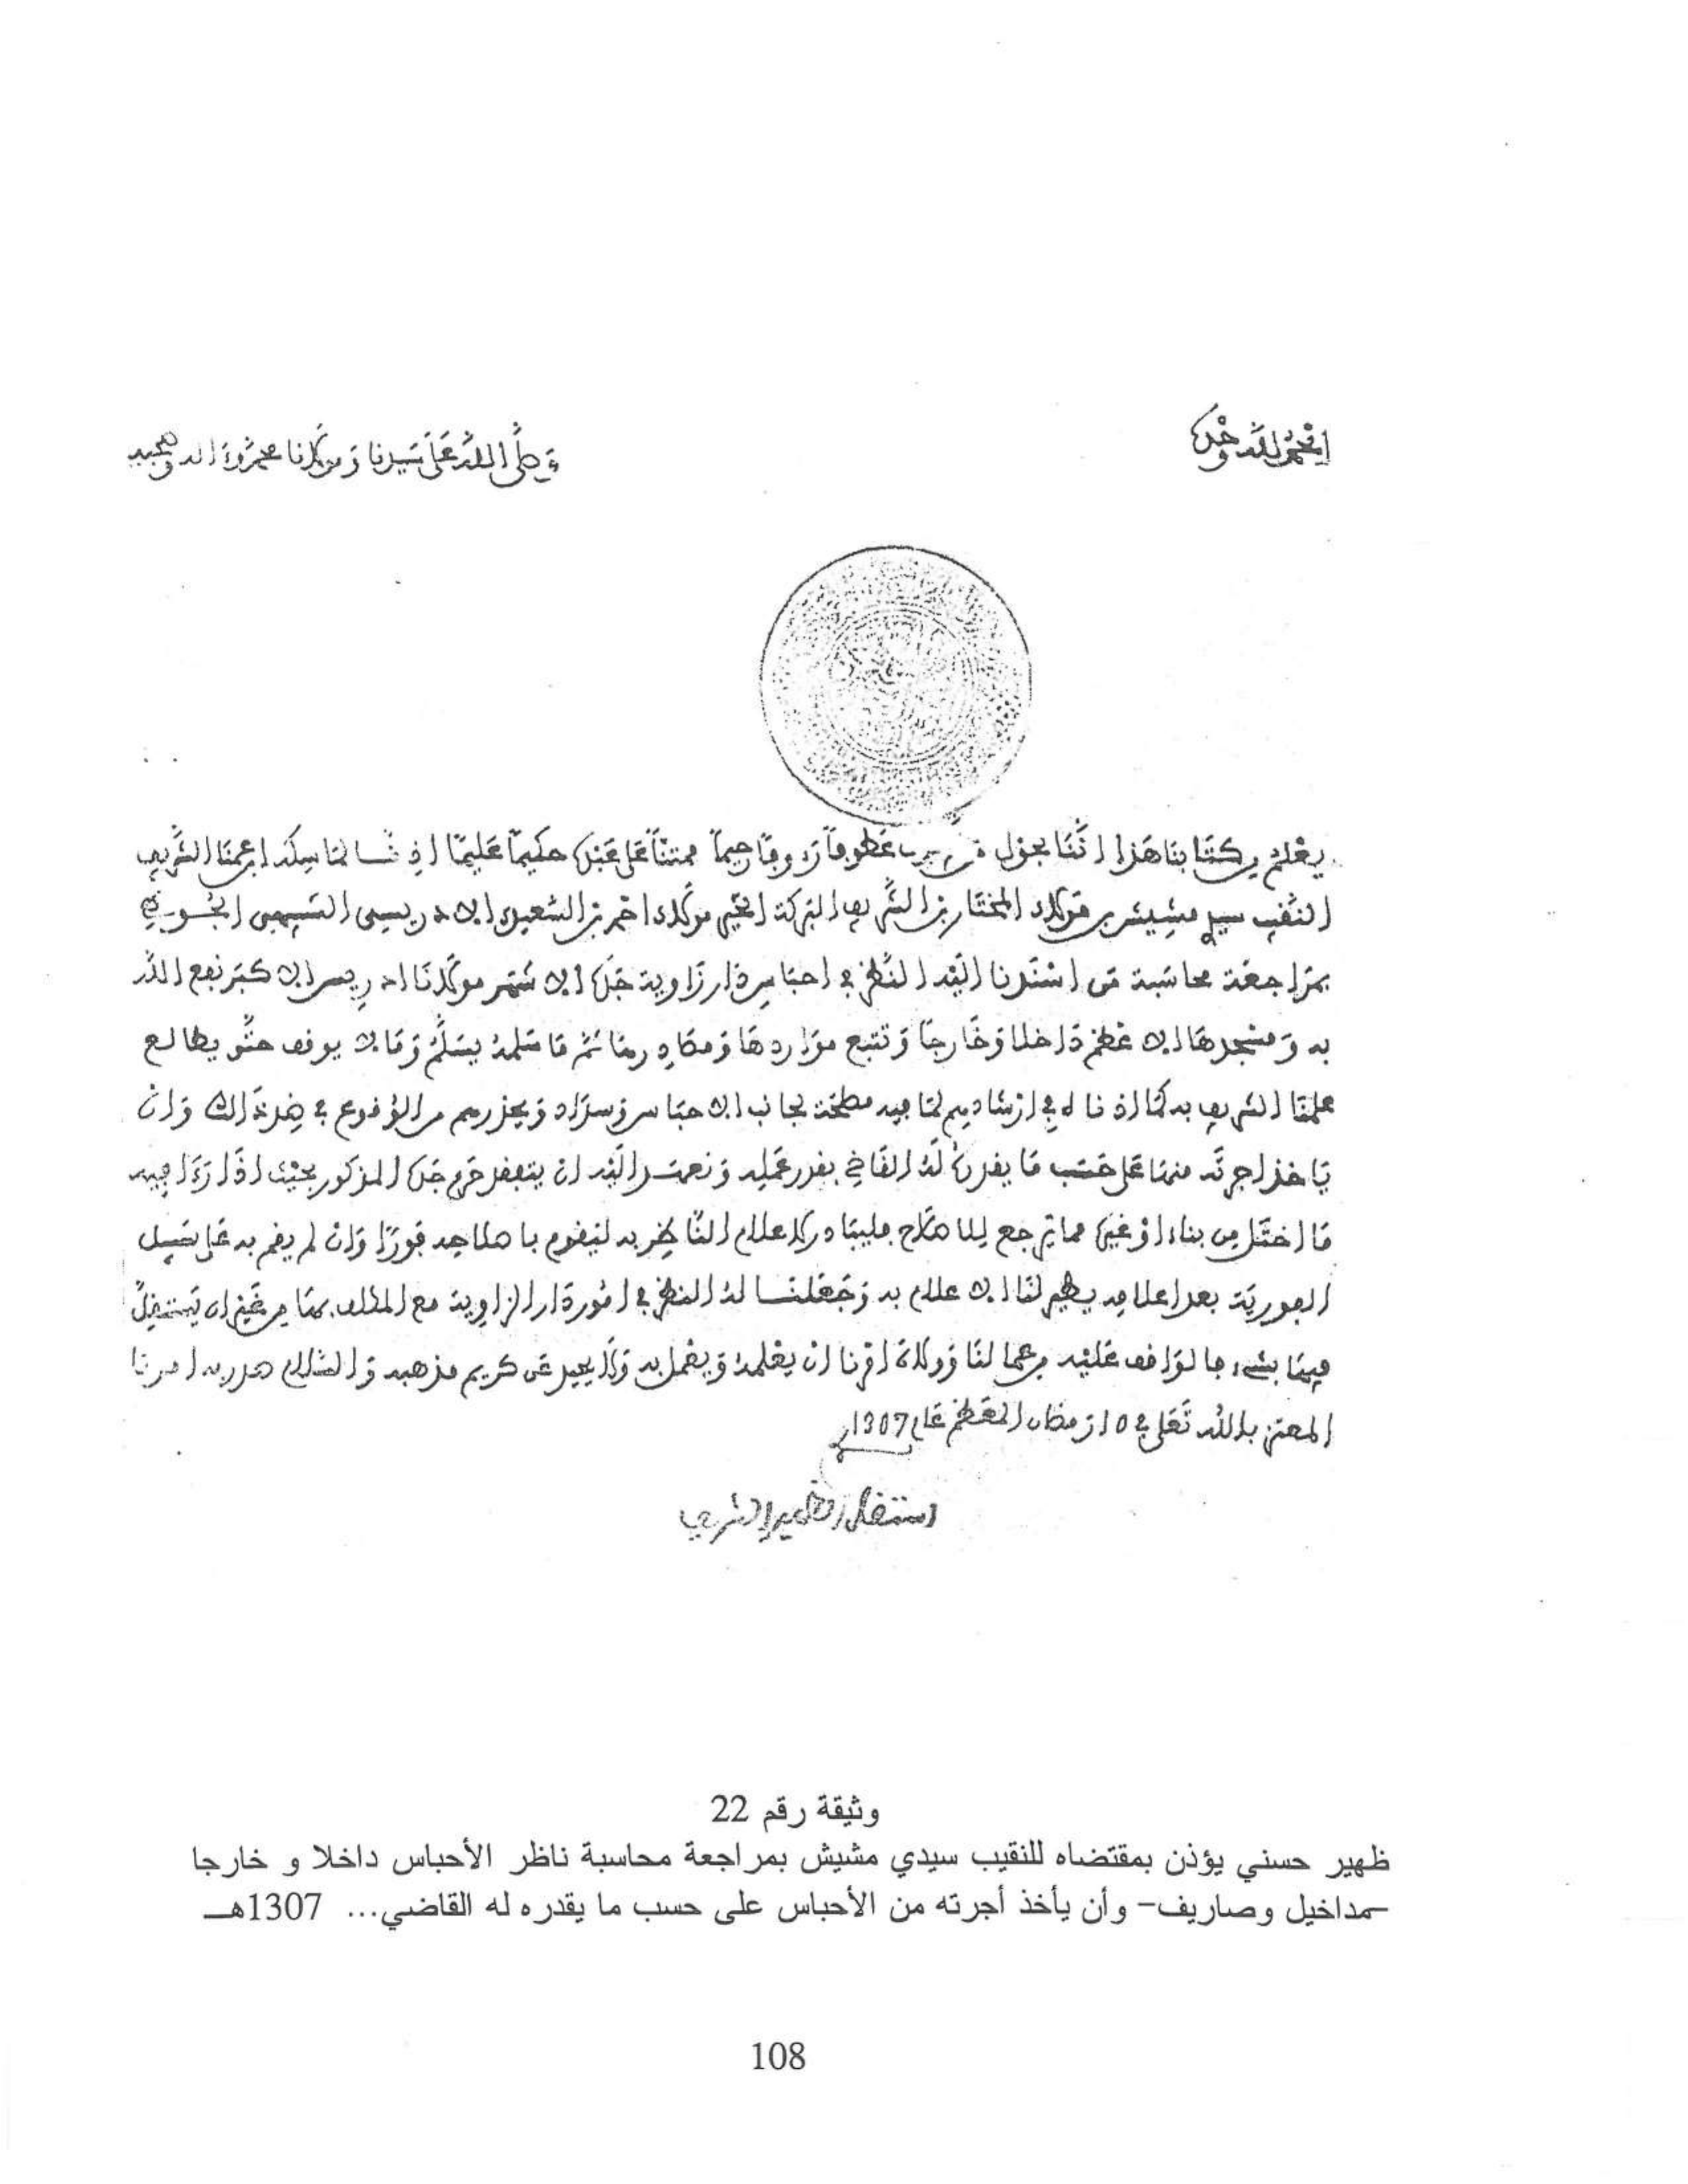 الحمد لله وحده
وصلى الله على سيدنا ومولانا محمد وءاله وصحبه
يعلم من كتابنا هذا اننا بحول عطوفا رءوفا رحيما ممتنا على عبده حكيما عليما اذنا لماسكه ابن عمنا الشريف
النقيب سيدي مشيش بن مولاي المختار بن الشريف البركة الخير مولاي احمد بن الادريسي
بمراجعة محاسبة من اسندنا اليه النظر في احباس دار زاوية جده الاشهر مولانا ادريس الاكبر نفع الله
به ومسجدها الاعظم داخلا وخارجا وتتبع مواردها ومصادرها ثم ما سلمه يسلم وما لا يوقف حتى يطالع
علمنا الشريف به كما اذنا له في ارشادهم لما فيه مصلحة لجانب الاحباس وسداد ويحذرهم من الوقوع في ضد ذالك وان
ياخذ اجرته منها على حسب ما يقدره له القاضي بقدر عمله ونعهد اليه ان يتفقد حرم جده المذكور بحيث اذا رءا فيه
ما اختل من بناء او غيره مما يرجع للاصلاح فليبادر لاعلام الناظر به ليقوم باصلاحه فورا وان لم يقم به على سبيل
الفورية بعد اعلامه يطير لنا الاعلام به وجعلنا له النظر في امور دار الزاوية مع المكلف بها من غير ان يستقل
فيها بشيء فالواقف عليه من عمالنا وولاة امرنا ان يعلمه ويعمل به ولا يحيد عن كريم مذهبه والسلام صدر به امرنا
المعتز بالله تعلى في 15 رمضان المعظم عام 1307
استقل الظهير الشريف
وثيقة رقم 22
ظهير حسني يؤذن بمقتضاه للنقيب سيدي مشيش بمراجعة محاسبة ناظر الأحباس داخلا و خارجا
-مداخيل وصاريف- وأن يأخذ أجرته من الأحباس على حسب ما يقدره له القاضي... 1307هـ
108